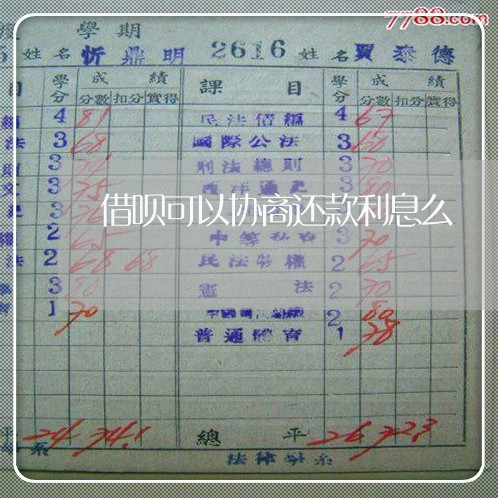 7788.com
學期
5 姓名 忻鼎明 2616 姓名 賈泰德
目 學分 成績 課目 學分 成績
分數 扣分 實得 分數 扣分 實得
4 81 民法債編 4 67
法 3 68 國際公法 3 60
3 刑法總則 3 70
3 75 西洋通史 3 80
借呗可以协商还款利息么
2 65 3 70
法 2 68 68 民法物權 2 65
3 80 憲法 2 70
1 70 2 80
普通體育 1 78
平 24 74.1 總平 26 72.3
系 法律學系